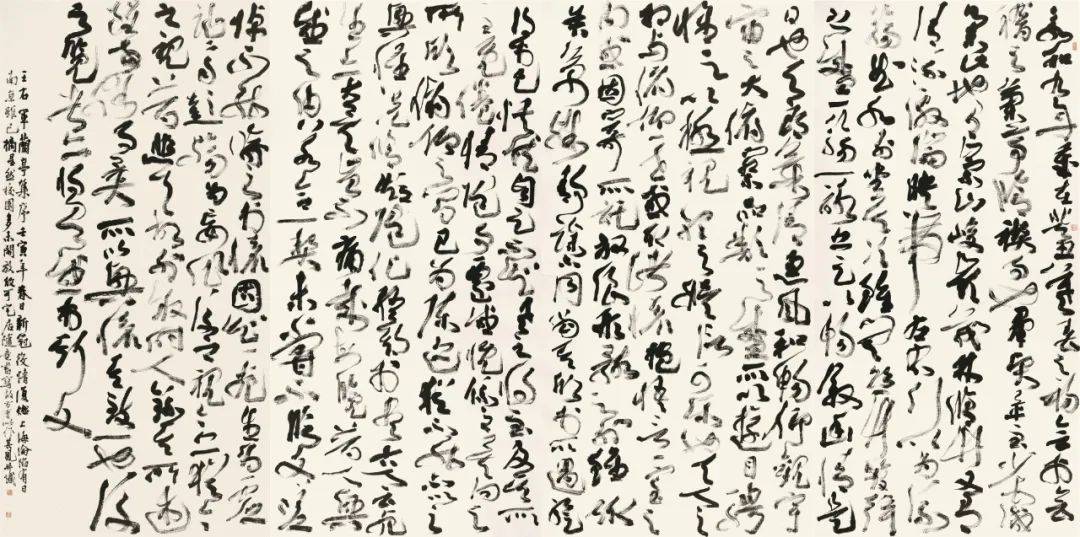 永和九年歲在癸丑暮春之初會于會
稽山之蘭亭脩禊事也羣賢畢至少長咸
集此地有崇山峻嶺茂林脩竹又有
清流激湍映帶左右引以為流
觴曲水列坐其次雖無絲竹管弦
之盛一觴一詠亦足以暢敘幽情是
日也天朗氣清惠風和暢仰觀宇
宙之大俯察品類之盛所以遊目騁
懷足以極視聽之娛信可樂也夫人之
相與俯仰一世或取諸懷抱悟言一室之
內或因寄所託放浪形骸之外雖趣
舍萬殊靜躁不同當其欣於所遇暫
得於己快然自足不知老之將至及其所
之既倦情隨事遷感慨係之矣向之
所欣俯仰之間已為陳迹猶不能不以之
興懷況脩短隨化終期於盡古人云死
生亦大矣豈不痛哉每覽昔人興
感之由若合一契未嘗不臨文嗟
悼不能喻之於懷固知一死生為虛
誕齊彭殤為妄作後之視今亦猶今
之視昔悲夫故列敘時人錄其所述
雖世殊事異所以興懷其致一也後
之覽者亦將有感於斯文
王右軍蘭亭集序壬寅年春日新冠疫情復燃上海淪陷有日
南京雖已摘星然校園多未開放居隨意書寫並識